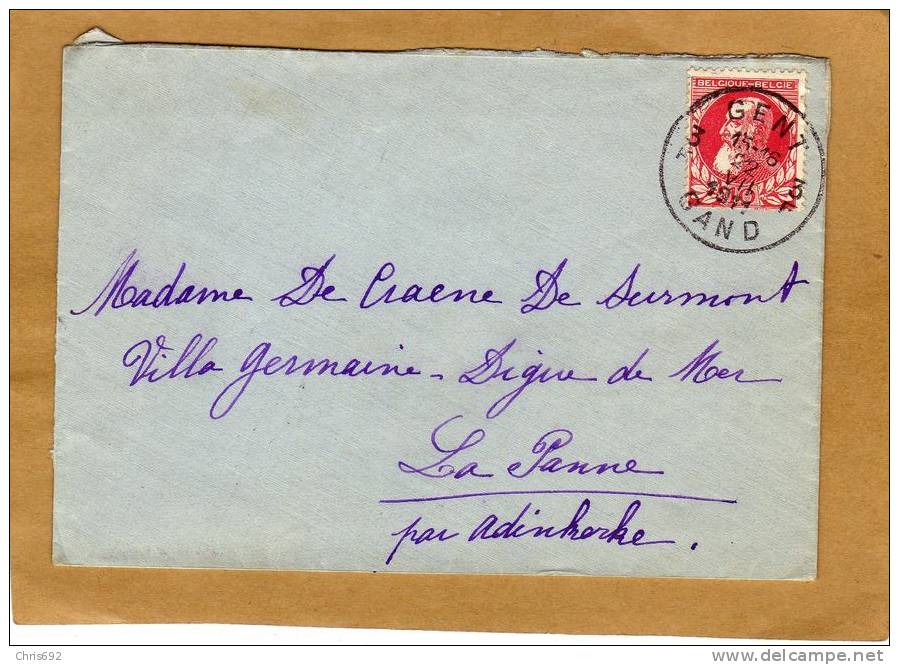 BELGIQUE-BELGIE
GENT
3F 3F
15-16
22
VII
1911
GAND
10
Madame De Craene De Surmont
Villa Germaine - Digue de Mer
La Panne
par Adinkerke.
Chris692
www.delcampe.net